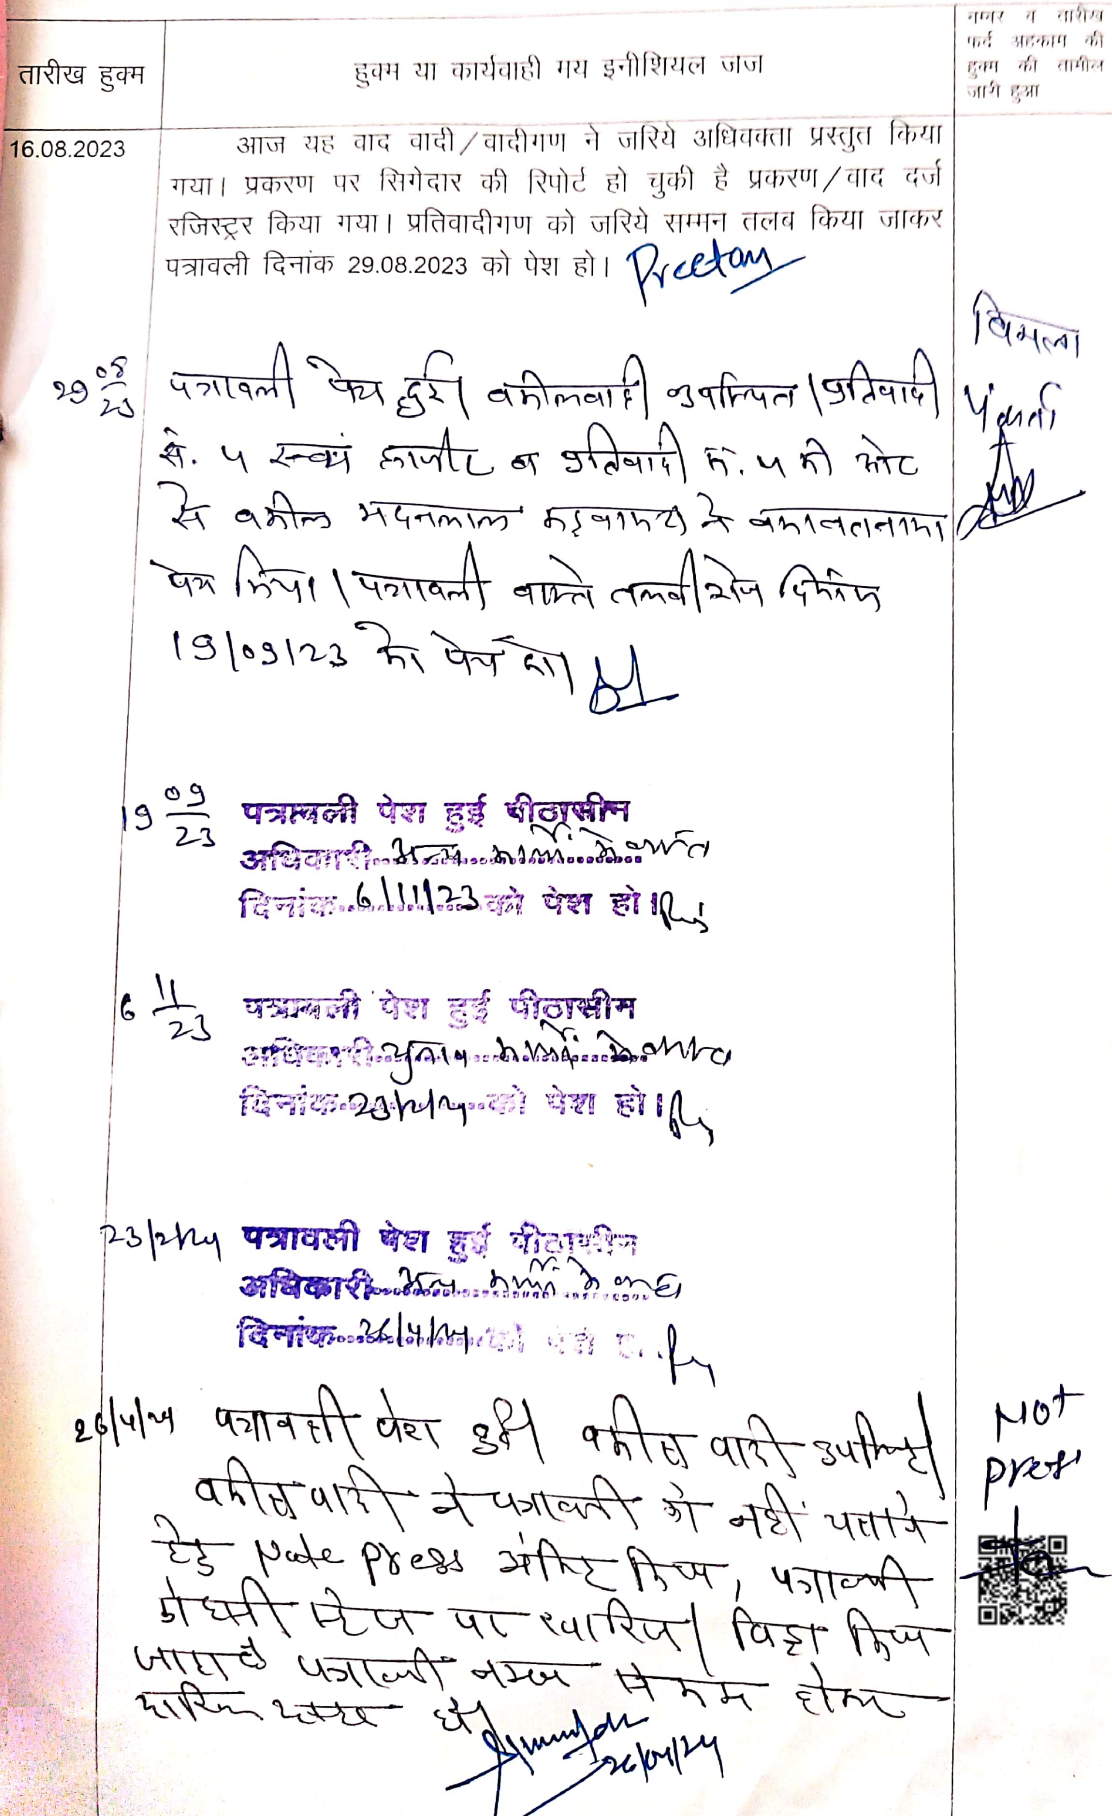 तारीख हुक्म
हुक्म या कार्यवाही मय इनीशियल जज
नम्बर व तारीख
फर्द अहकाम की
हुक्म की तामील
जारी हुआ
16.08.2023
आज यह वाद वादी/वादीगण ने जरिये अधिवक्ता प्रस्तुत किया
गया। प्रकरण पर सिगेदार की रिपोर्ट हो चुकी है प्रकरण/वाद दर्ज
रजिस्ट्रर किया गया। प्रतिवादीगण को जरिये सम्मन तलब किया जाकर
पत्रावली दिनांक 29.08.2023 को पेश हो। Preetam
विमला
29 08/23 पत्रावली पेश हुई। वकील वादी उपस्थित। प्रतिवादी
सं. 4 स्वयं हाजीर व प्रतिवादी सं. 4 की ओर
से वकील मदनलाल ने वकालतनामा
पेश किया। पत्रावली वास्ते तलबी शेष दिनांक
19/09/23 को पेश हो।
19 09/23 पत्रावली पेश हुई पीठासीन
अधिकारी अन्य कार्यों में व्यस्त
दिनांक 6/11/23 को पेश हो।
6 11/23 पत्रावली पेश हुई पीठासीन
अधिकारी चुनाव कार्यों में व्यस्त
दिनांक 23/2/24 को पेश हो।
23/2/24 पत्रावली पेश हुई पीठासीन
अधिकारी अन्य कार्यों में व्यस्त
दिनांक 26/4/24 को पेश हो.
26/4/24 पत्रावली पेश हुई। वकील वादी उपस्थित।
वकील वादी ने पत्रावली को नहीं चलाने
हेतु Note press अंकित किया, पत्रावली
इसी स्टेज पर खारिज। किया
जाता है पत्रावली नम्बर से कम होकर
दाखिल दफ्तर हो।
26/04/24
Not
press